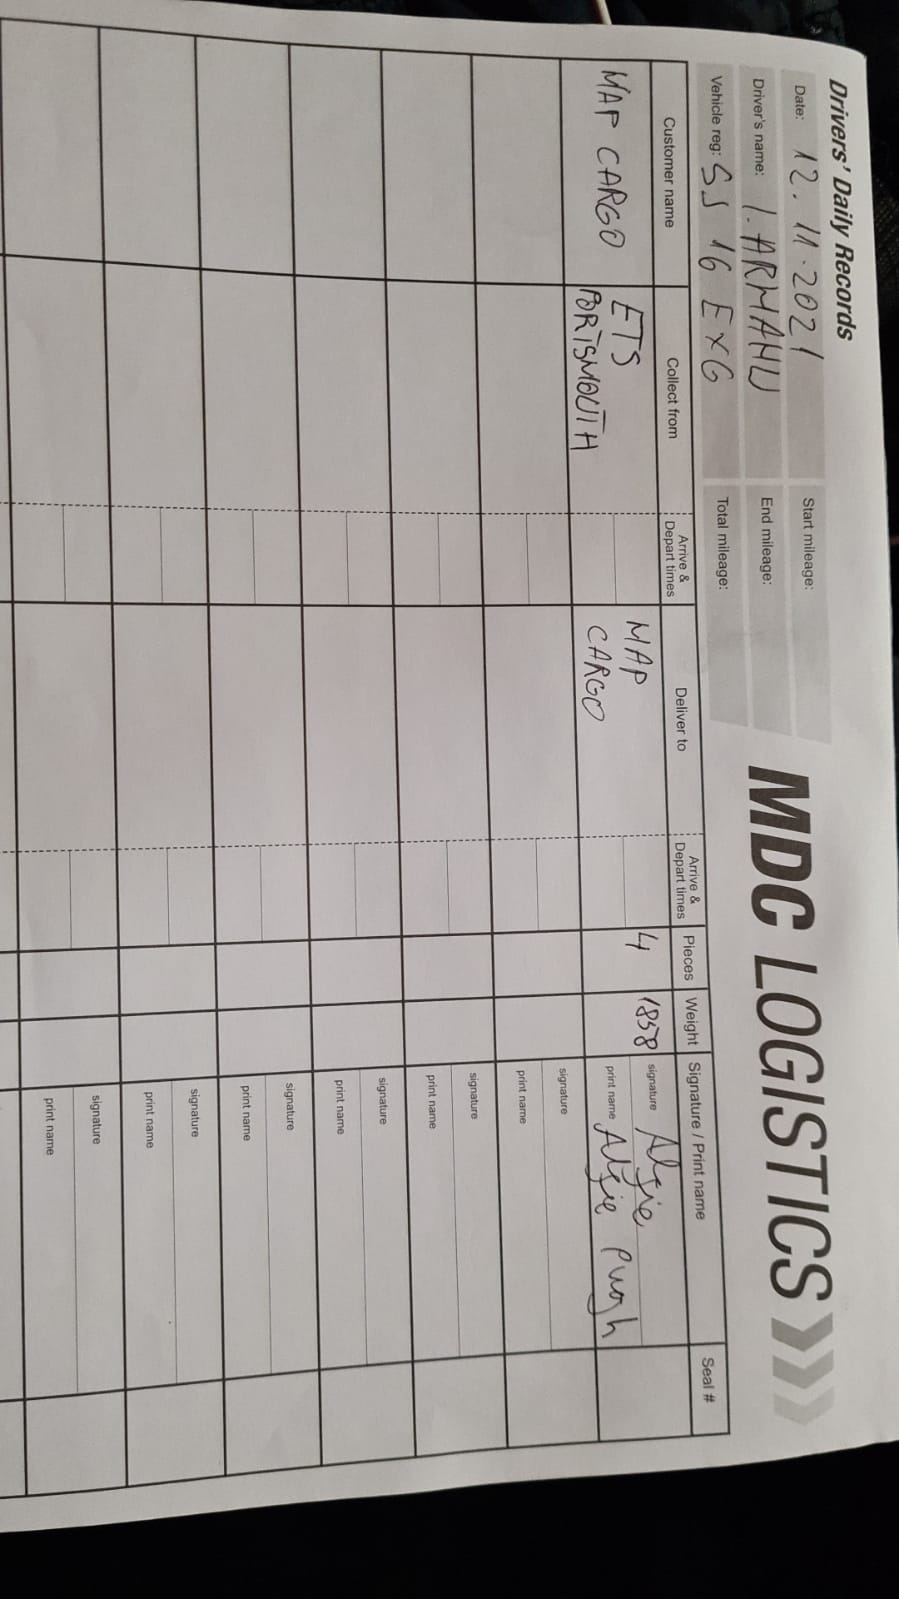 Drivers' Daily Records
MDC LOGISTICS
Date: 12.11.2021
Start mileage:
Driver's name: I. ARMANU
End mileage:
Vehicle reg: SJ 16 EXG
Total mileage:
Customer name
Collect from
Arrive & Depart times
Deliver to
Arrive & Depart times
Pieces
Weight
Signature / Print name
Seal #
MAP CARGO
ETS
PORTSMOUTH
MAP
CARGO
4
1858
signature Algie
print name Algie Pwgh
signature
print name
signature
print name
signature
print name
signature
print name
signature
print name
signature
print name